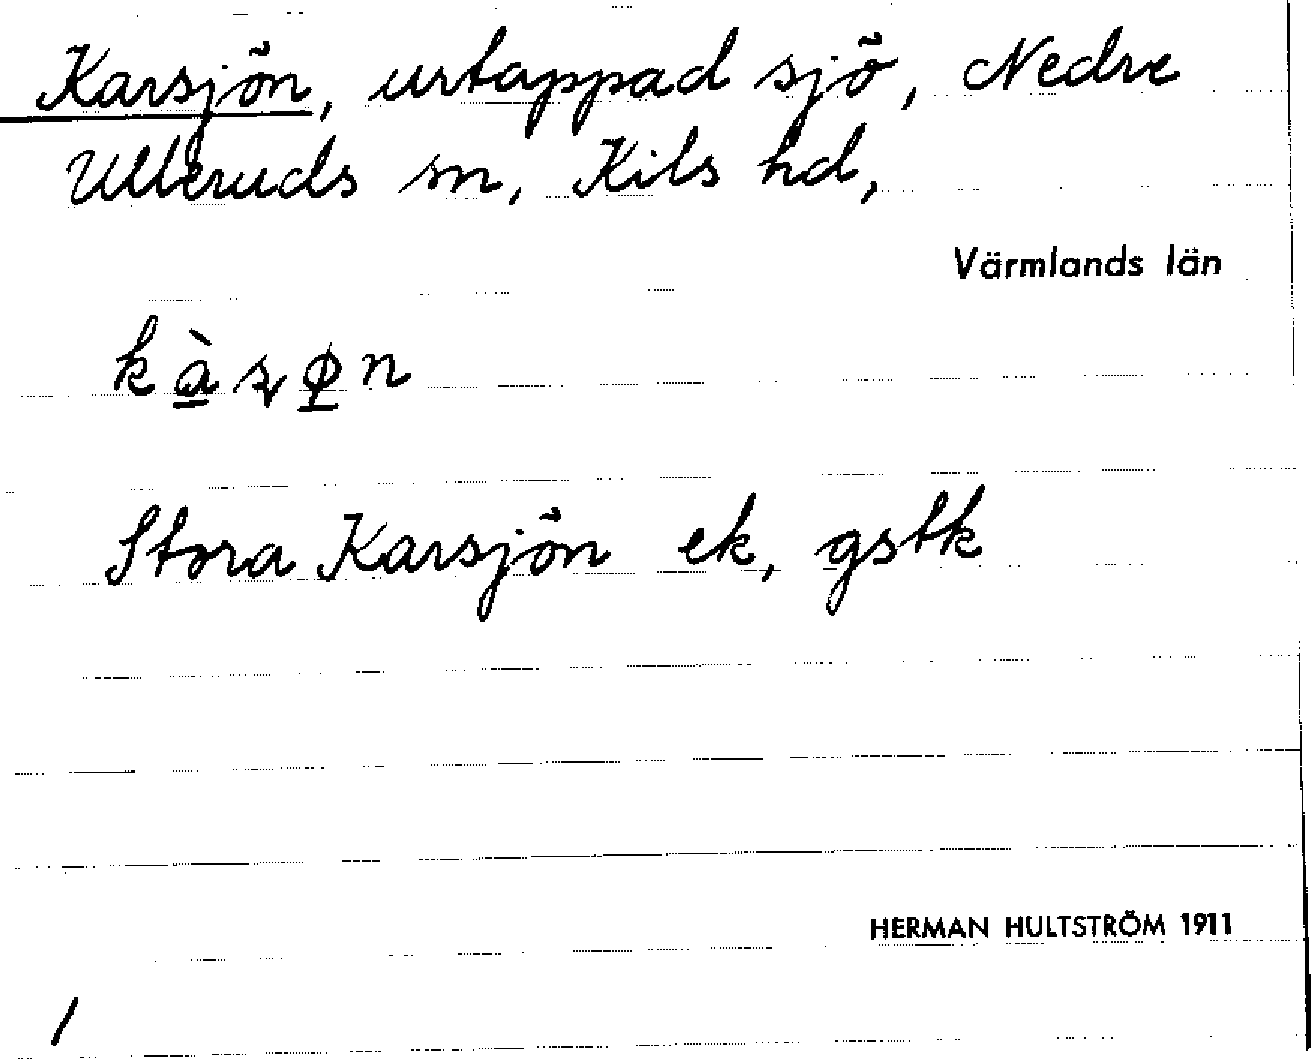 Karsjön, urtappad sjö, Nedre
Ulleruds sn, Kils hd,
Värmlands län
Stora Karsjön ek, gstk
HERMAN HULTSTRÖM 1911
/